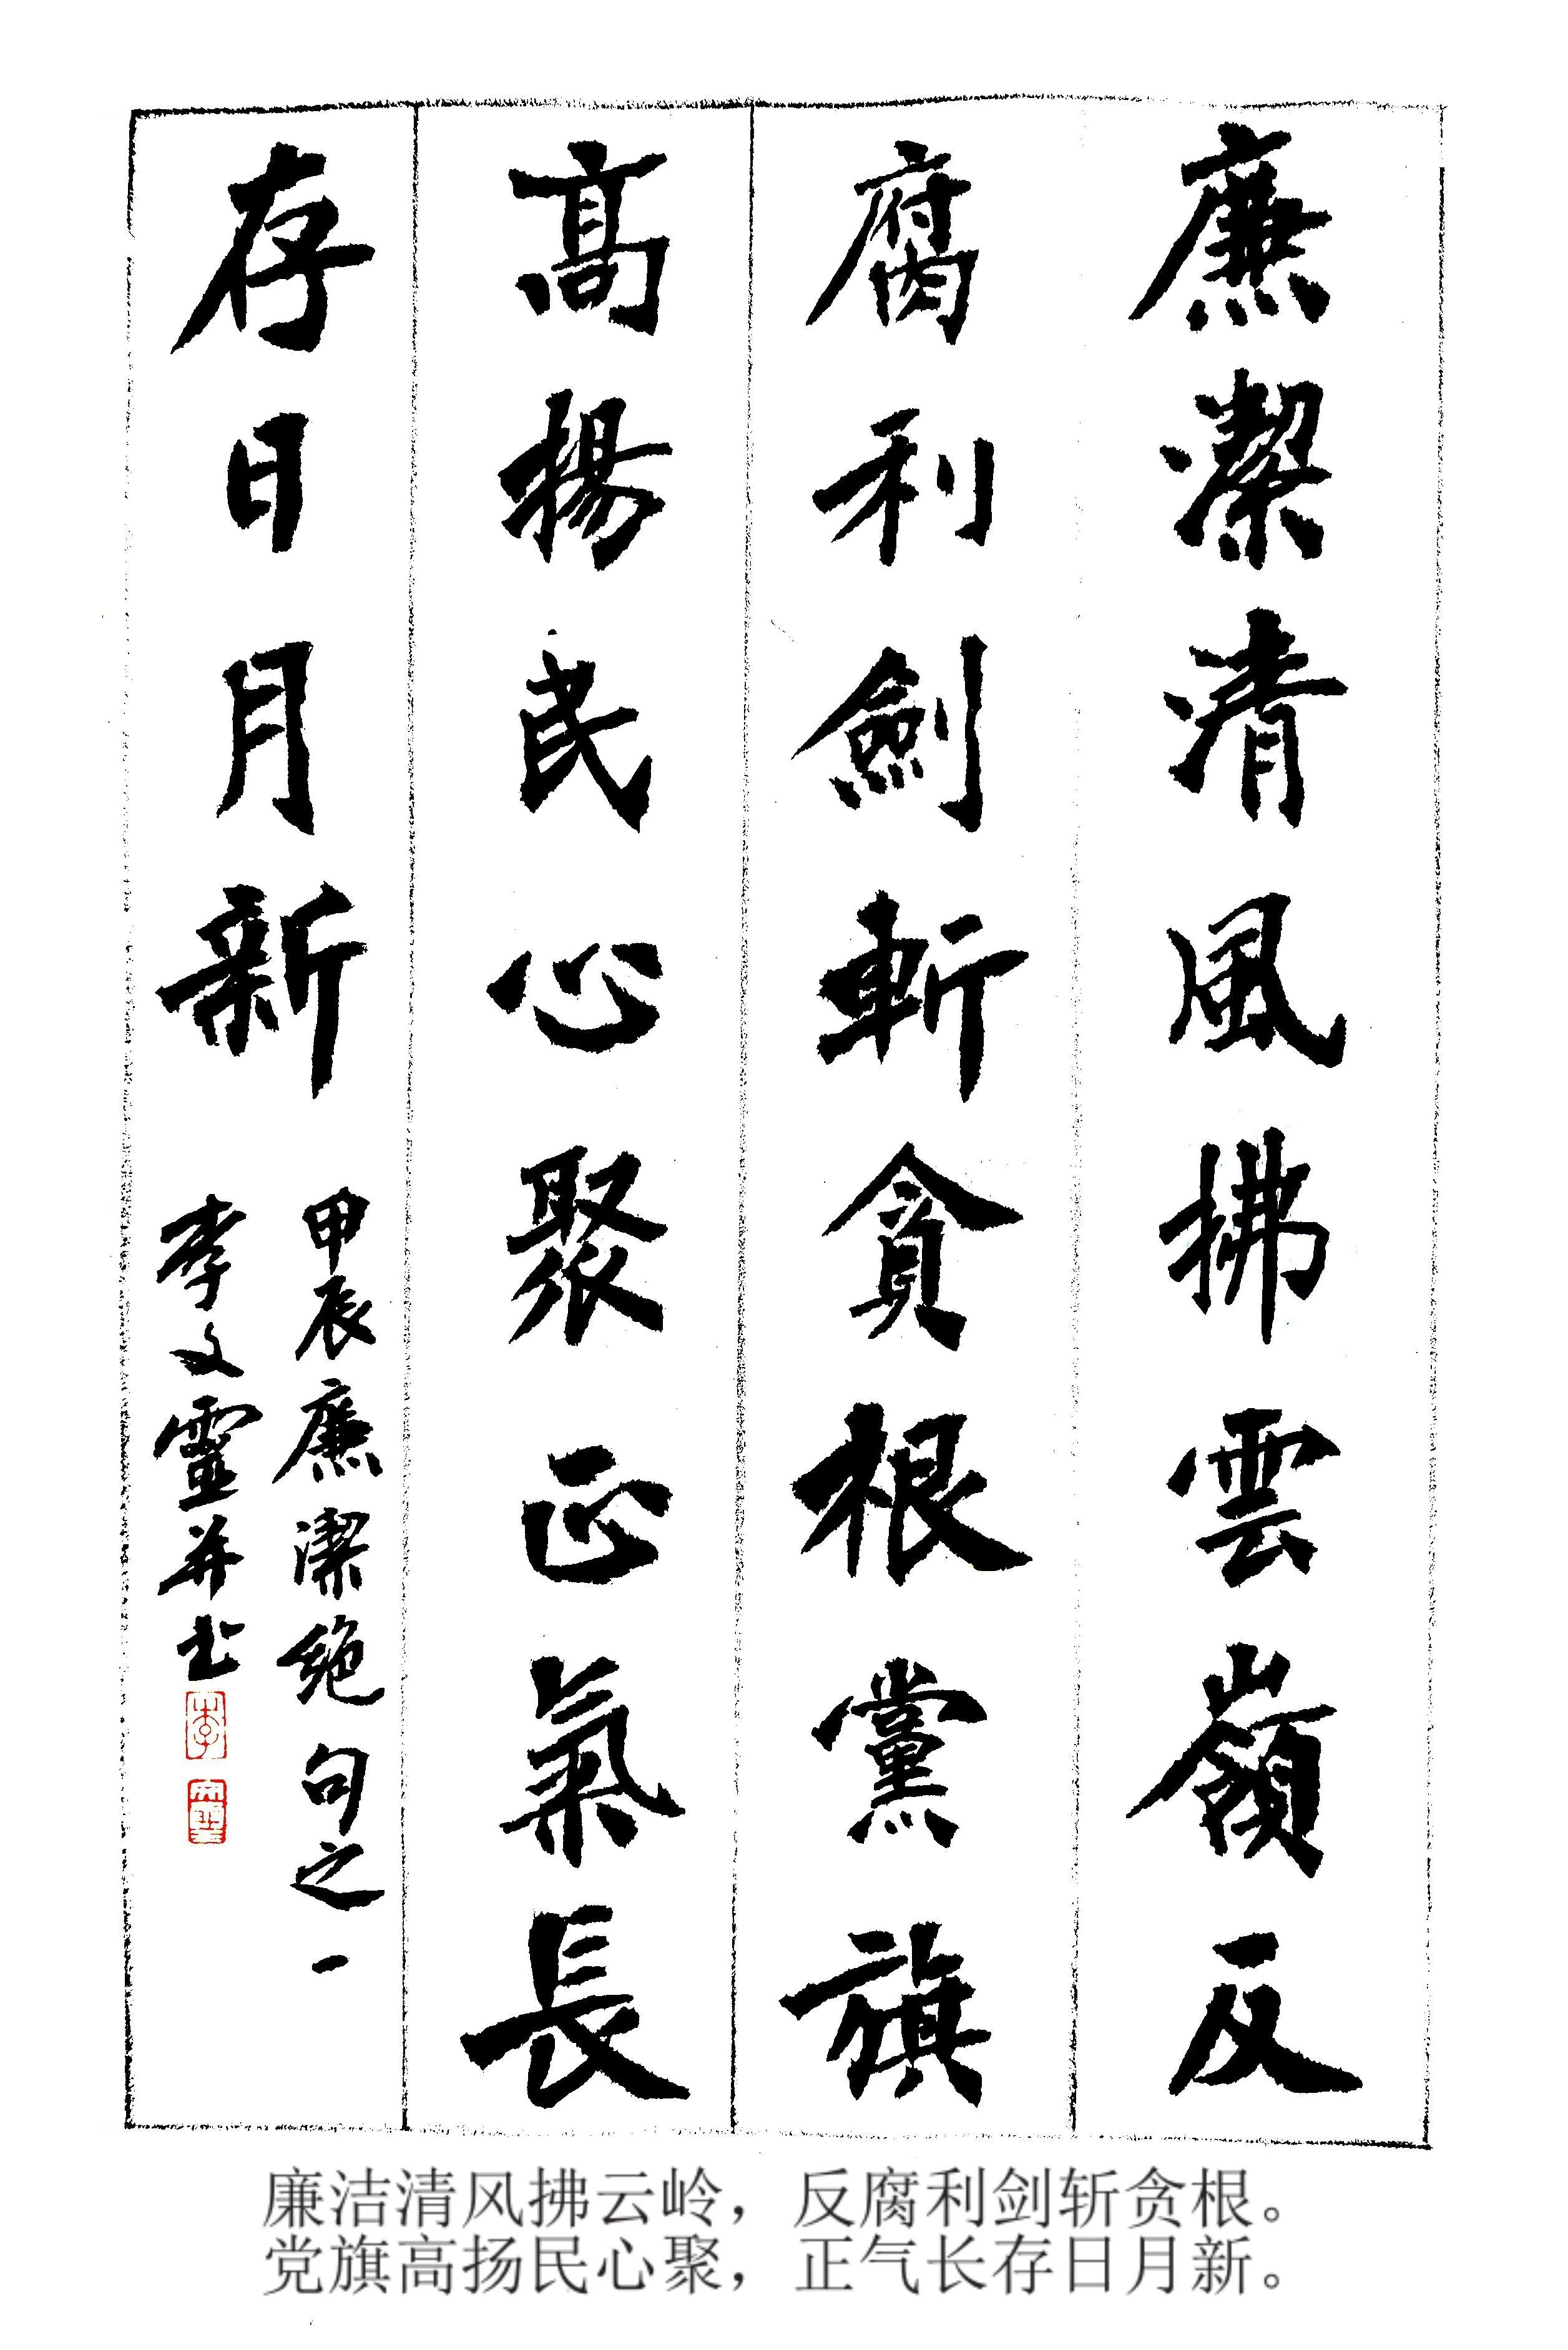 廉潔清風拂雲嶺反
腐利劍斬貪根黨旗
高揚民心聚正氣長
存日月新
甲辰廉潔絕句之一
李文靈并书
李
文靈
廉洁清风拂云岭，反腐利剑斩贪根。
党旗高扬民心聚，正气长存日月新。